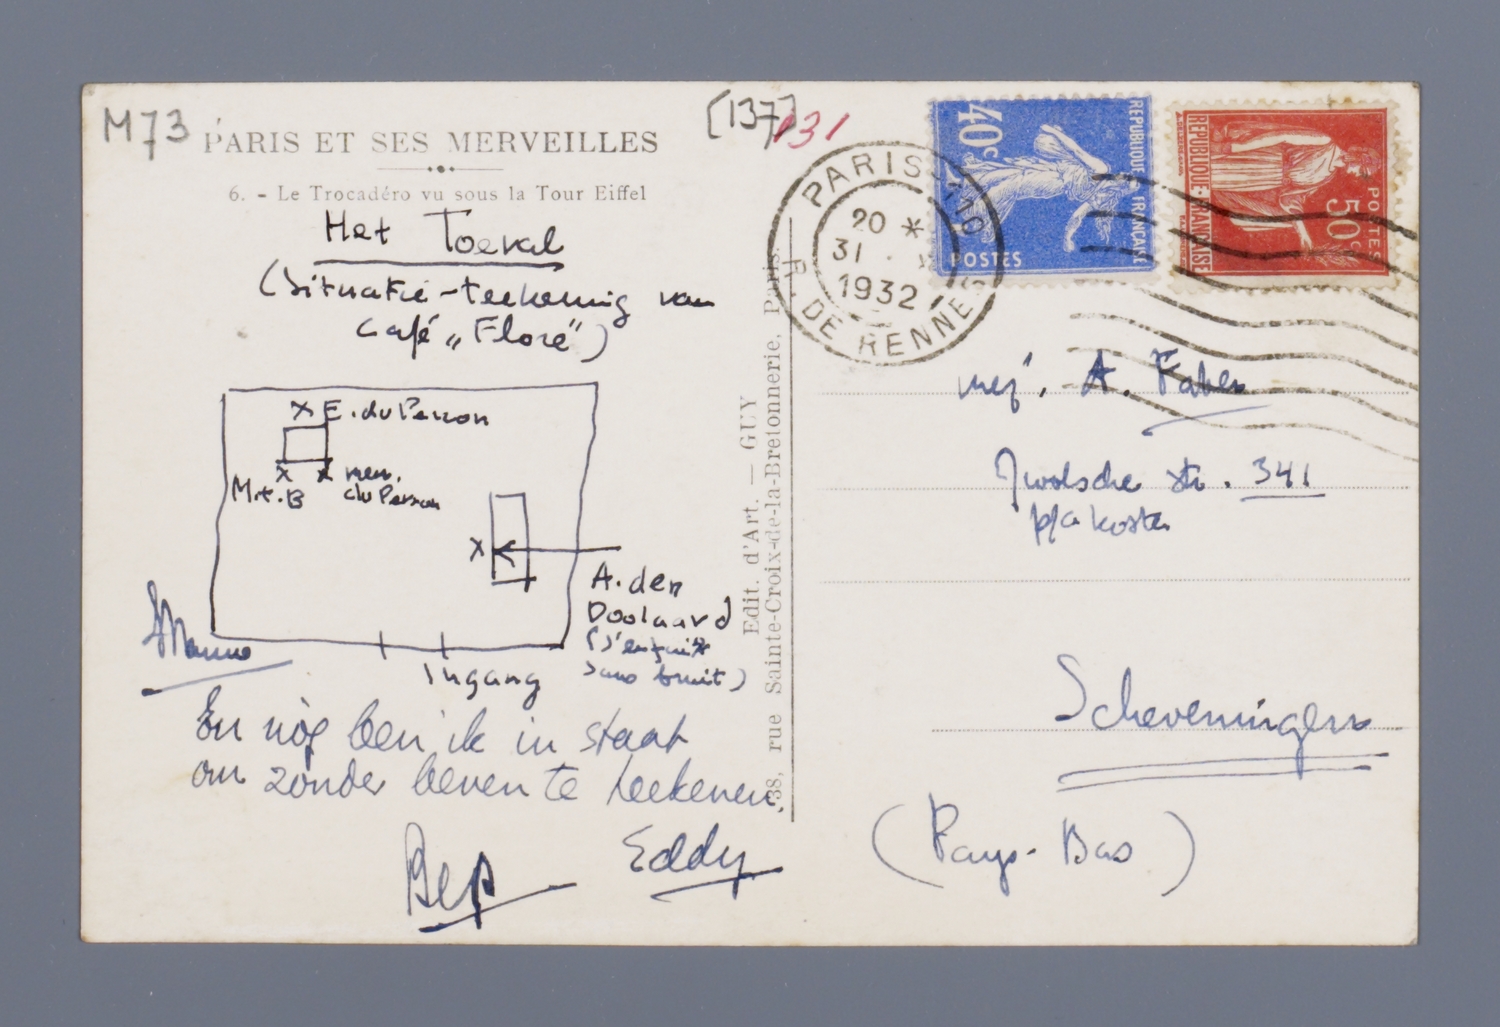 M73
PARIS ET SES MERVEILLES
6. - Le Trocadéro vu sous la Tour Eiffel
[137]
131
Het Toeval
(Situatie-teekening van
Café „Flore")
X E. du Perron
M.t.B
X
X mevr.
du Perron
X
A. den
Doolaard
(s'enfuit
sans bruit)
Ingang
En nòg ben ik in staat
om zonder beven te teekenen,
Bep
Eddy
Edit. d'Art. — GUY
38, rue Sainte-Croix-de-la-Bretonnerie. Paris.
PARIS 110
20 *
31
1932
R. DE RENNES
40c
REPUBLIQUE FRANÇAISE
POSTES
REPUBLIQUE FRANÇAISE
50c
POSTES
mej. A. Faber
Zwolsche str. 341
p/a Koster
Scheveningen
(Pays-Bas)